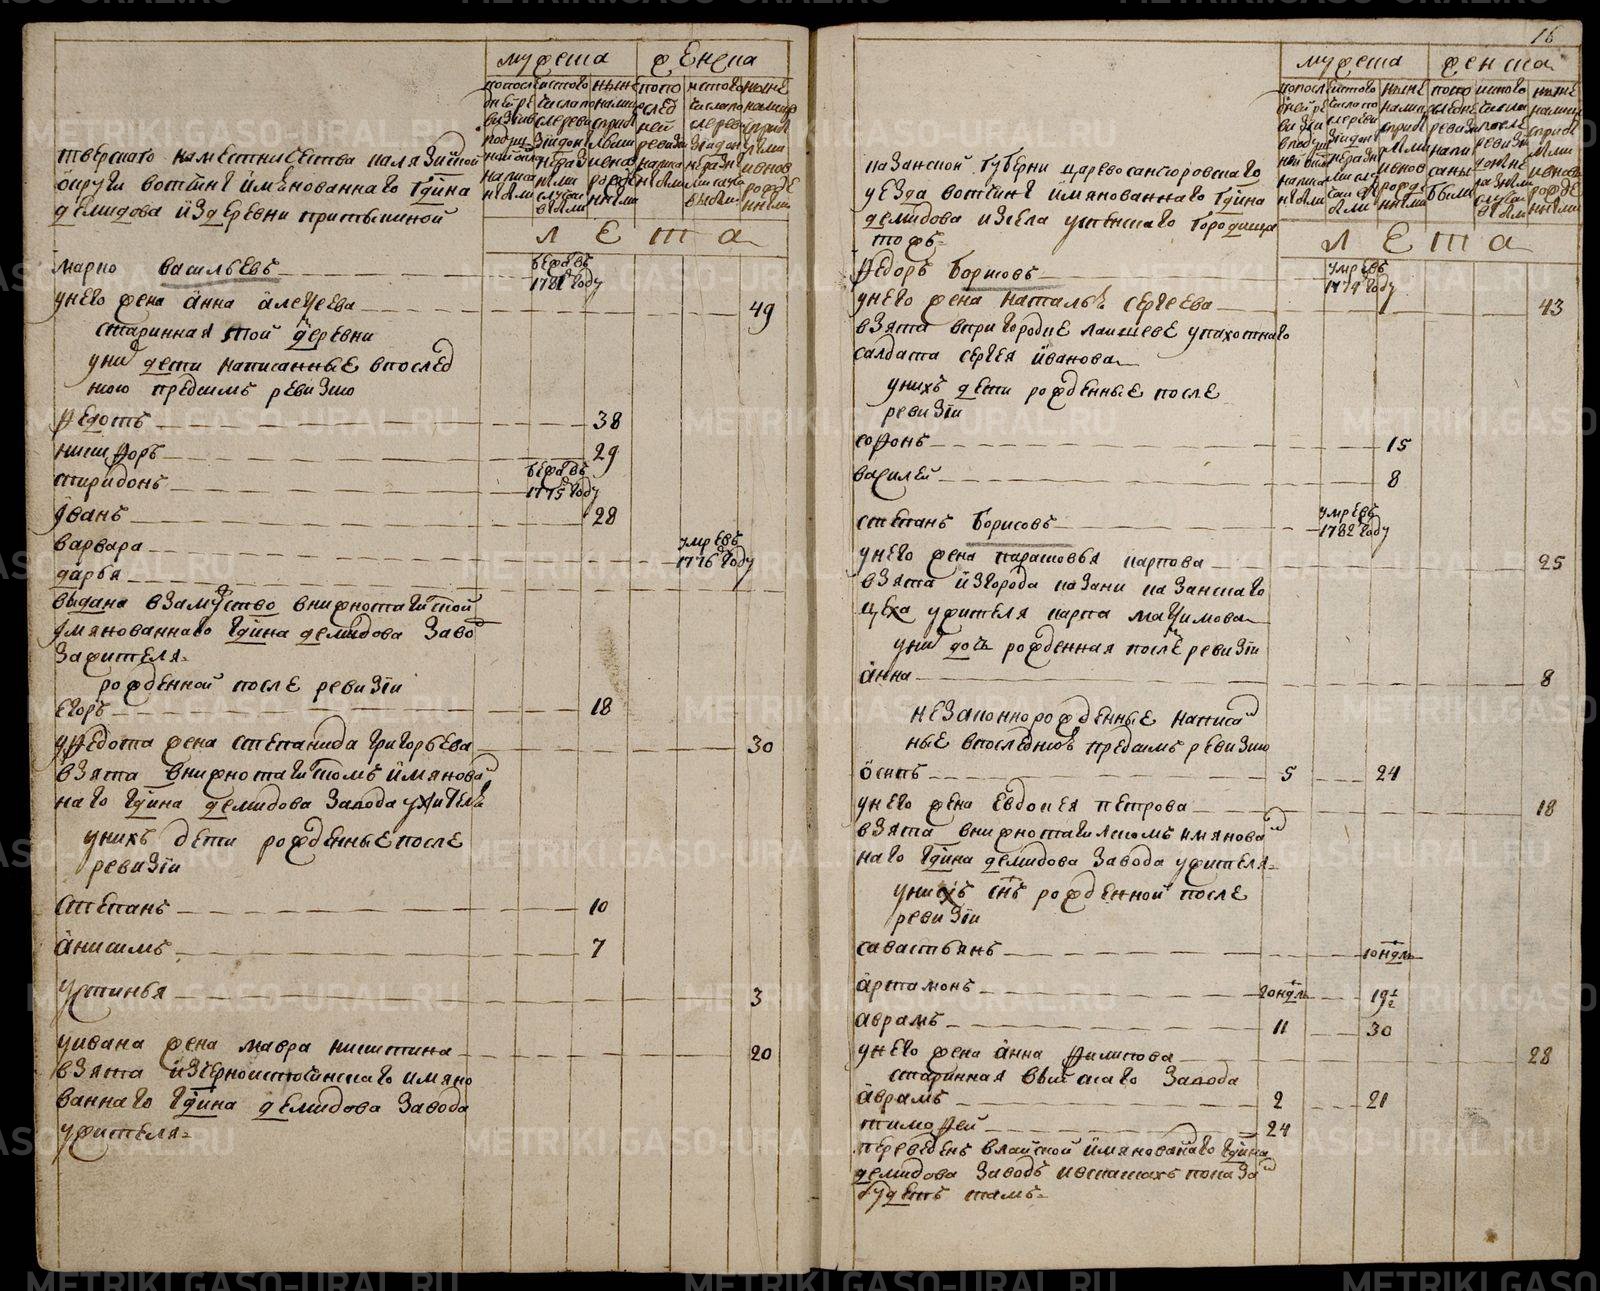 16
мужеска женска
л е т а
тверскаго наместничества калязинской
округи вотчины имянованнаго Гдина
демидова из деревни притыкиной
марко васильевъ
бежа въ 1781 году
у него жена анна алексеева 49
старинная той деревни
у них дети написанные в послед
нюю пред симъ ревизию
Федотъ 38
никифоръ 29
спиридонъ
бежа въ 1775 году
Иванъ 28
варвара
умре въ 1776 году
дарья
выдана в замужство в нижнотагилской
имянованнаго Гдина демидова заво
за жителя
рожденной после ревизии
егоръ 18
у Федота жена степанида григорьева 30
взята в нижнотагилскомъ имянова
наго Гдина демидова завода у жителя
у нихъ дети рожденные после
ревизии
степанъ 10
анисимъ 7
устинья 3
у ивана жена мавра никитина 20
взята из черноисточинскаго имяно
ваннаго Гдина демидова завода
у жителя
мужеска женска
л е т а
казанской губерни царевосанчюровскаго
уезда вотчины имянованнаго Гдина
демидова из села успенскаго городища
тожъ
Федоръ борисовъ
умре въ 1779 году
у него жена наталья сергеева 43
взята в пригородке лаишеве у пахотнаго
салдата сергея иванова
у нихъ дети рожденные после
ревизии
софонъ 15
василей 8
степанъ борисовъ
умре въ 1782 году
у него жена парасковья карпова 25
взята из города казани казанскаго
цеха у жителя карпа максимова
у них дочь рожденная после ревизии
анна 8
незаконнорожденные написа
ные в последнюю пред симъ ревизию
осипъ 5 24
у него жена евдокея петрова 18
взята в нижнотагилскомъ имянова
наго Гдина демидова завода у жителя
у нихъ снъ рожденной после
ревизии
савастьянъ 10 ндль
артамонъ 20 ндль 19 1/2
аврамъ 11 30
у него жена анна филипова 28
старинная выйскаго завода
аврамъ 2 21
тимофей 24
переведенъ в лайской имянованаго Гдина
демидова заводъ и в скаскахъ показа
будетъ тамъ
METRIKI.GASO-URAL.RU